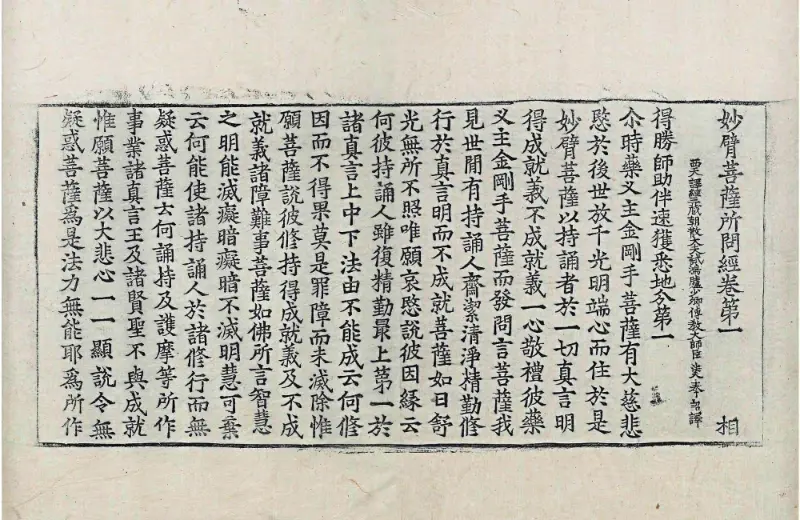 妙臂菩薩所問經卷第一　相
西天譯經三藏朝散大夫試鴻臚少卿傳教大師臣法天奉詔譯
得勝師助伴速獲悉地分第一
尒時藥义主金剛手菩薩有大慈悲
愍於後世放千光明端心而住於是
妙臂菩薩以持誦者於一切真言明
得成就義不成就義一心敬禮彼藥
义主金剛手菩薩而發問言菩薩我
見世閒有持誦人齋潔清淨精勤修
行於真言明而不成就菩薩如日舒
光無所不照唯願哀愍說彼因緣云
何彼持誦人雖復精勤最上第一於
諸真言上中下法由不能成云何修
因而不得果莫是罪障而未滅除惟
願菩薩說彼修持得成就義及不成
就義諸障難事菩薩如佛所言智慧
之明能滅癡暗癡暗不滅明慧可棄
云何能使諸持誦人於諸修行而無
疑惑菩薩云何誦持及護摩等所作
事業諸真言王及諸賢聖不與成就
惟願菩薩以大悲心一一顯說令無
疑惑菩薩爲是法力無能耶爲所作